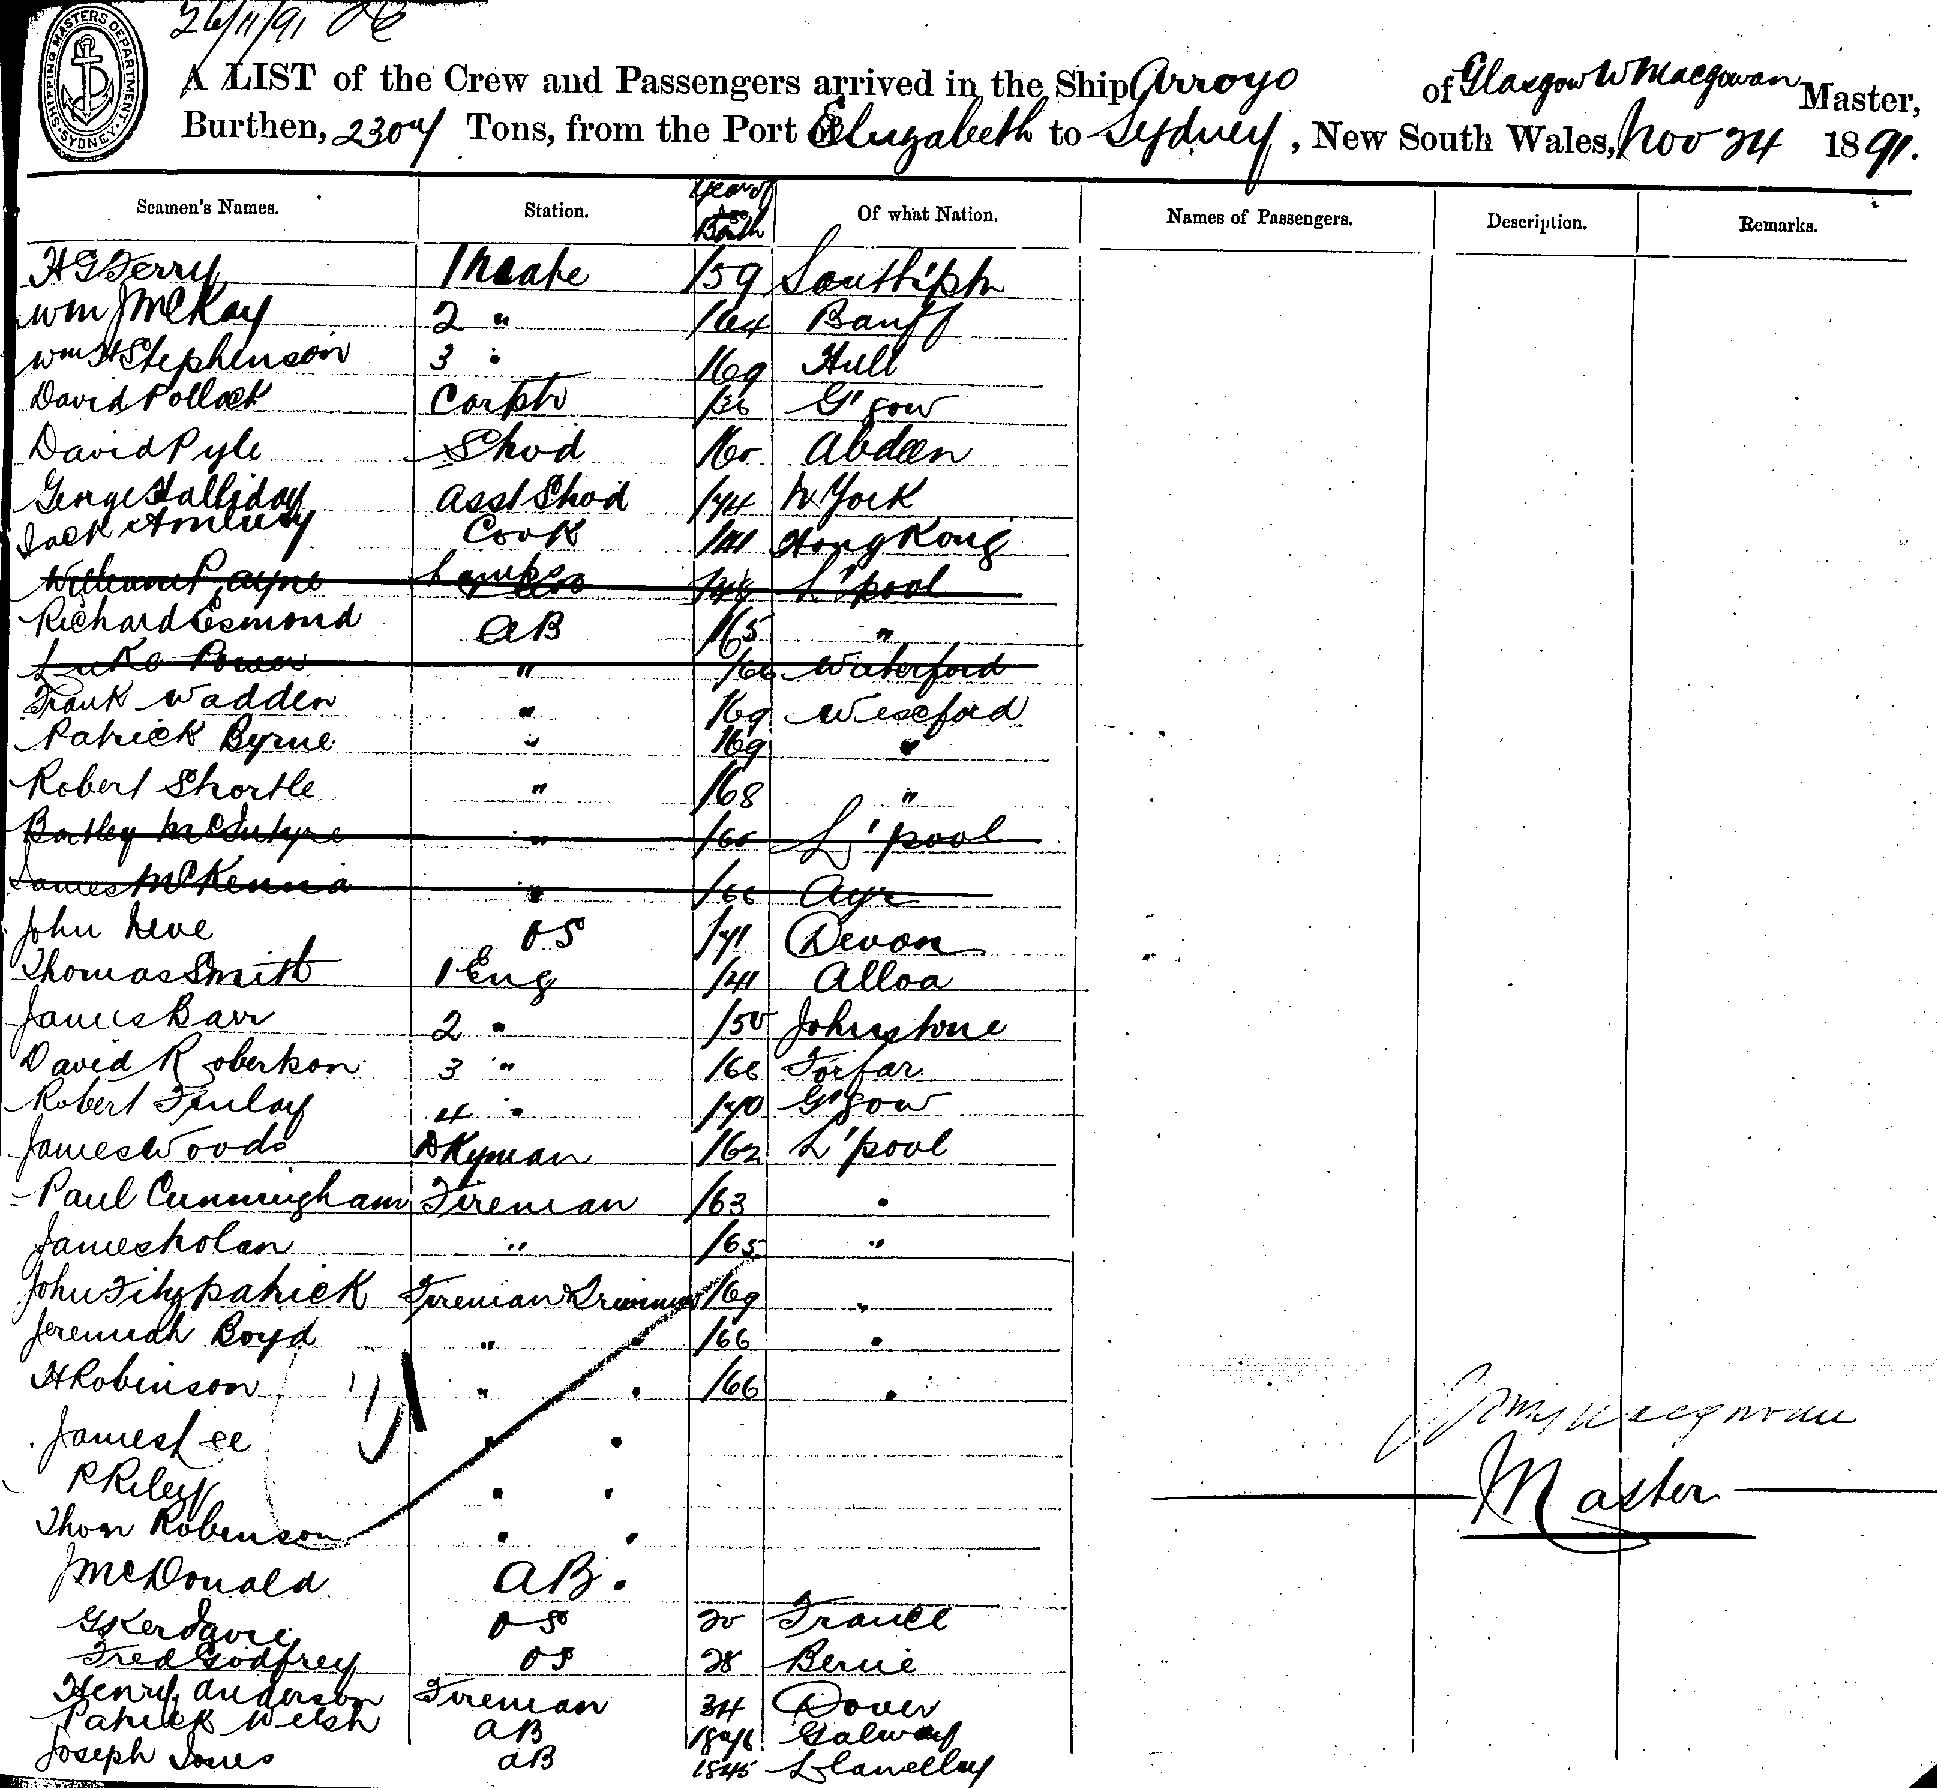 26/11/91
SHIPPING MASTERS DEPARTMENT SYDNEY
A LIST of the Crew and Passengers arrived in the Ship Arroyo of Glasgow W Macgowan Master,
Burthen, 2304 Tons, from the Port Elizabeth to Sydney, New South Wales, Nov 24 1891.
Seamen's Names. Station. Year of Birth Of what Nation. Names of Passengers. Description. Remarks.
H G Terry 1 Mate /59 South'ptn
Wm J McKay 2 " /64 Banff
Wm H Stephenson 3 " /69 Hull
David Pollock Carptr /36 G'gow
David Pyle Shod /60 Abdeen
George Halliday Asst Shod /74 N York
Jack Cook /41 Hong Kong
William Payne Lamps L'pool
Richard Esmond AB /65 "
Luke Power " /66 Waterford
Frank Wadden " /69 Wexford
Patrick Byrne " /69 "
Robert Shortle " /68 "
Bartley McIntyre " /60 L'pool
James McKenna " /66 Ayr
John Neve OS /71 Devon
Thomas Smith 1 Eng /41 Alloa
James Barr 2 " /50 Johnstone
David Robertson 3 " /66 Forfar
Robert Finlay 4 " /70 G'gow
James Woods Dkyman /62 L'pool
Paul Cunningham Fireman /63 "
James Nolan " /65 "
John Fitzpatrick Fireman & Trimmer /69 "
Jeremiah Boyd " " /66 "
H Robinson " " /66 "
James Lee " "
P Riley " "
Thom Robinson " "
J McDonald AB.
OS 20 France
Fred Godfrey OS 28 Berne
Henry Anderson Fireman 34 Dover
Patrick Welsh AB Galway
Joseph Jones AB 1845 Llanelly
Macgowan
Master